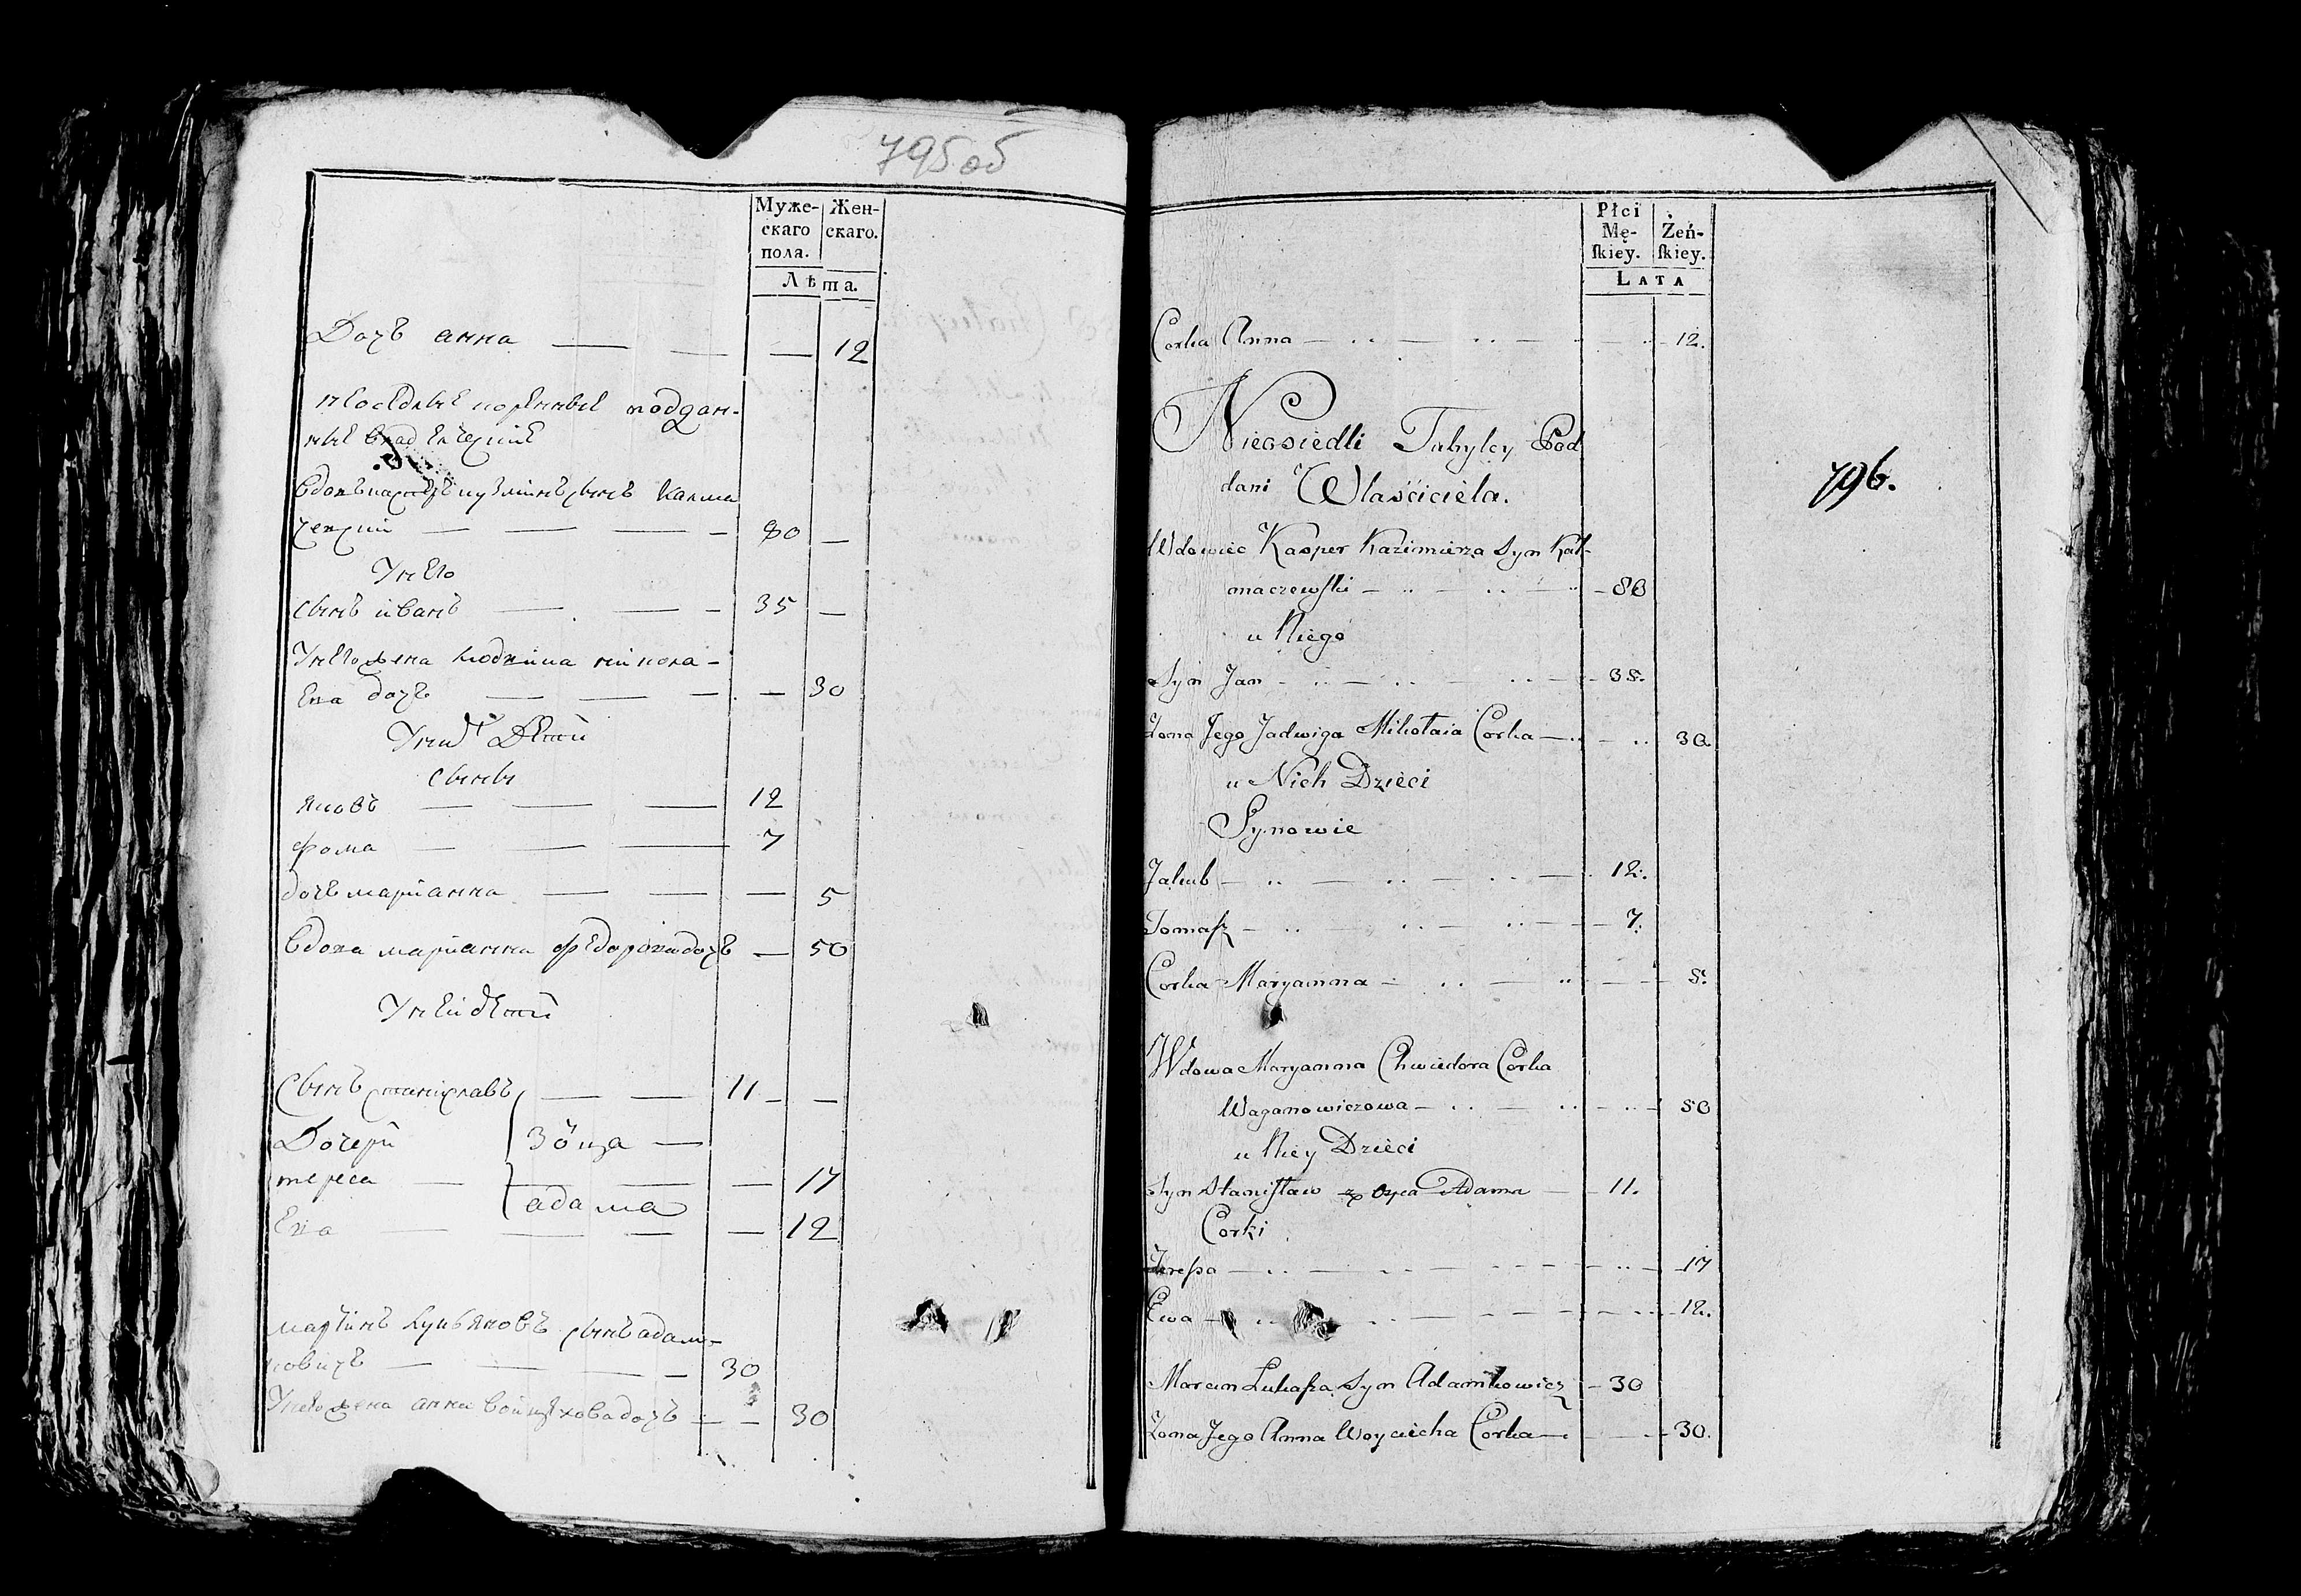 795 об
Муже- Жен-
скаго скаго.
пола.
Лѣта.
Дочь анна — — — 12
неоседлые коренные поддан-
ные владелческие
вдовъ касперъ сынъ калма
чевский — — — 80 —
У него
сынъ иванъ — — 35 —
У него жена никола-
ева дочь — — — — 30
У них детей
сыны
яковъ — — — 12
фома — — — 7
дочь марианна — — — 5
вдова марианна федорова дочь — 50
У неи детеи
Сынъ станиславъ — — 11 — —
Дочери зőца —
тереса — — — — 17
адама
Ева — — — — 12
мартинъ лукьяновъ сынъ адам-
ковичъ — — — 30
У него жена анна войцехова дочь — — 30
Płci
Mę- Żeń-
ſkiey. ſkiey.
LATA
Corka Anna — .. — .. — - - 12.
Nieosiedli Tubylcy Pod
dani Właściciela.
796.
Wdowiec Kasper Kazimierza Syn Kał-
maczewſki — .. — .. — 80
u Niego
Syn Jan — .. — .. — .. — 35.
Zona Jego Jadwiga Mikołaia Corka — .. — .. 30
u Nich Dzieci
Synowie
Jakub — .. — .. — .. — 12.
Tomaſz — .. — .. — .. — 7.
Corka Maryanna — .. — .. — — 5.
Wdowa Maryanna Chwiedora Corka
Waganowiczowa — .. — .. — .. — 50
u Niey Dzieci
Syn Staniſław z oyca Adama — 11.
Corki
Tereſsa — .. — .. — - - - .. — 17
Ewa — .. — .. — - - - .. — 12.
Marcin Łukaſza Syn Adamkowicz — 30
Zona Jego Anna Woyciecha Corka — — 30.